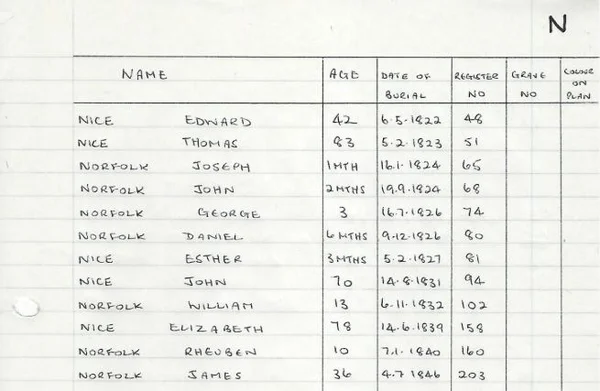 N
NAME AGE DATE OF BURIAL REGISTER NO GRAVE NO COLOUR ON PLAN
NICE EDWARD 42 6.5.1822 48
NICE THOMAS 83 5.2.1823 51
NORFOLK JOSEPH 1 MTH 16.1.1824 65
NORFOLK JOHN 2 MTHS 19.9.1824 68
NORFOLK GEORGE 3 16.7.1826 74
NORFOLK DANIEL 6 MTHS 9.12.1826 80
NICE ESTHER 3 MTHS 5.2.1827 81
NICE JOHN 70 14.8.1831 94
NORFOLK WILLIAM 13 6.11.1832 102
NICE ELIZABETH 78 14.6.1839 158
NORFOLK RHEUBEN 10 7.1.1840 160
NORFOLK JAMES 36 4.7.1846 203